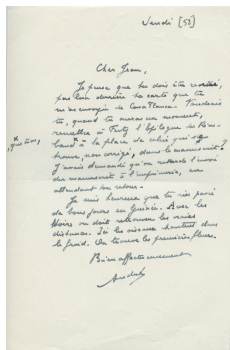 Vendredi [53]
Cher Jean,
Je pense que tu dois être rentré,
par ton dernière carte que tu
m'as envoyée de Casa Blanca. Voudrais
tu, quand tu auras un moment,
remettre à Festy l'épilogue du Rim-
baud à la place de celui qui s'y
trouve, non corrigé, dans le manuscrit?
J'avais demandé qu'on retarde l'envoi
du manuscrit à l'imprimerie, en
attendant ton retour.
Je suis heureux que tu aies passé
de bons jours en Guinée. Avec les
doit retrouver les vraies
distances. Ici les oiseaux
le froid. On trouve les premières fleurs.
Bien affectueusement